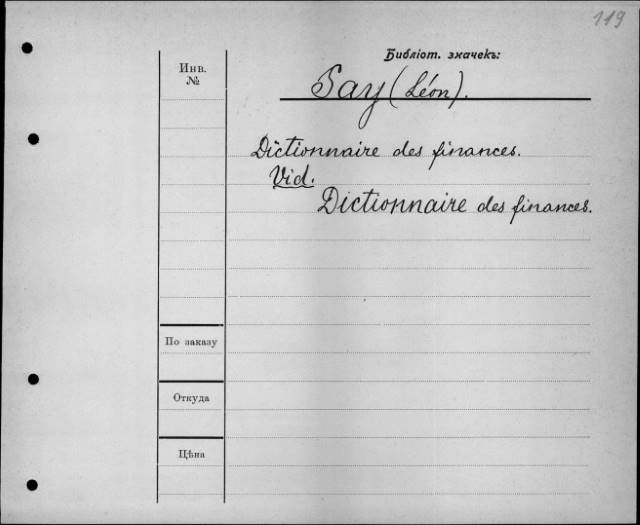 119
Библіот. значекъ:
Инв.
№
Say (Léon).
Dictionnaire des finances.
Vid.
Dictionnaire des finances.
По заказу
Откуда
Цѣна